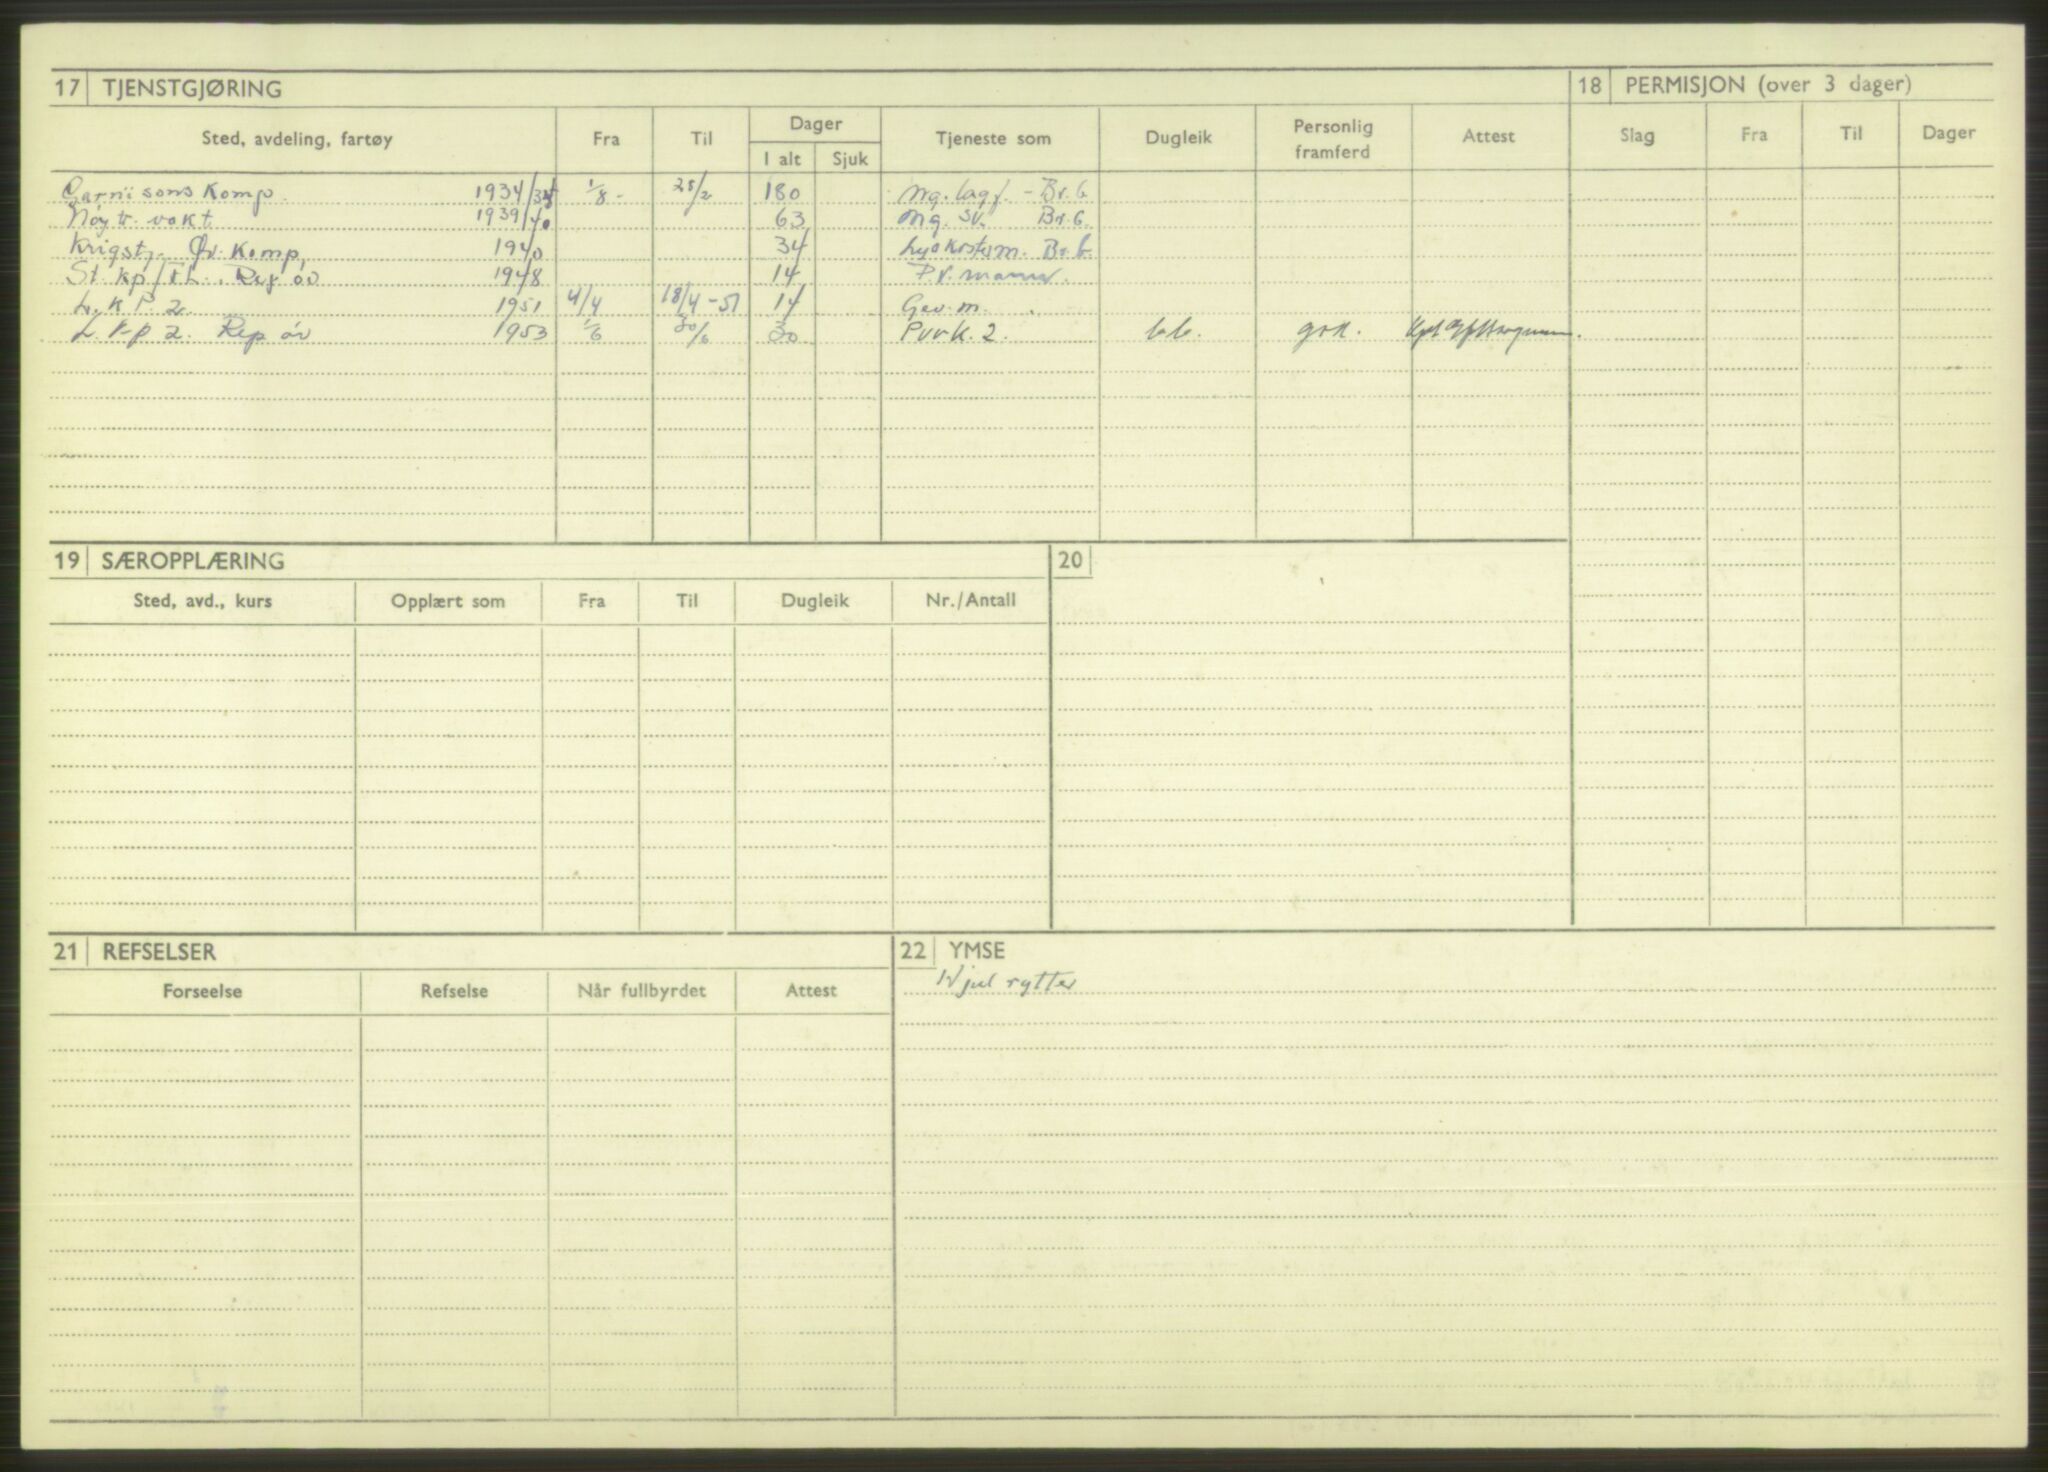 17 TJENSTGJØRING
Sted, avdeling, fartøy Fra Til Dager I alt Sjuk Tjeneste som Dugleik Personlig framferd Attest
Garnisons Komp. 1934/35 1/8 - 28/2 180 Mg. lagf. - Br. b
Nøytr. vakt 1939/40 63 Mg. sv. Br. b.
Krigstj. Øv. Komp, 1940 34 Br. b
St. kp/ Rep øv 1948 14 Pr. mann.
L. K P. 2. 1951 4/4 18/4 - 51 14 Gev. m.
L K p 2. Rep øv 1953 1/6 30/6 30 Pvrk. 2. b.b. god.
18 PERMISJON (over 3 dager)
Slag Fra Til Dager
19 SÆROPPLÆRING
Sted, avd., kurs Opplært som Fra Til Dugleik Nr./Antall
20
21 REFSELSER
Forseelse Refselse Når fullbyrdet Attest
22 YMSE
Hjul rytter